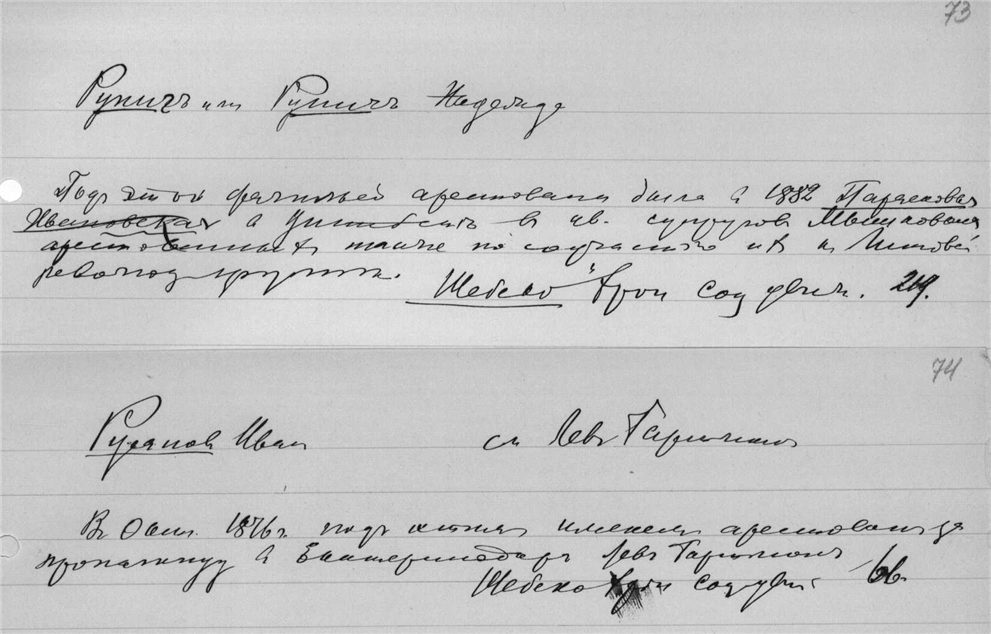 73
Руничъ или Руничъ Надежда
Подъ этой фамильей арестована была в 1882 Парасковья
Ивановская в Витебскѣ в кв. супругов Мышковыхъ
арестованных также по соучастию их к
революц группѣ.
Щебеко "Хрон соц движ. 219.
74
Русанов Иван см Левъ Гартманъ
В 1876 г. подъ этимъ именем арестован за
пропаганду в Екатеринодарѣ Левъ Гартманъ
Щебеко Хрон соц движ